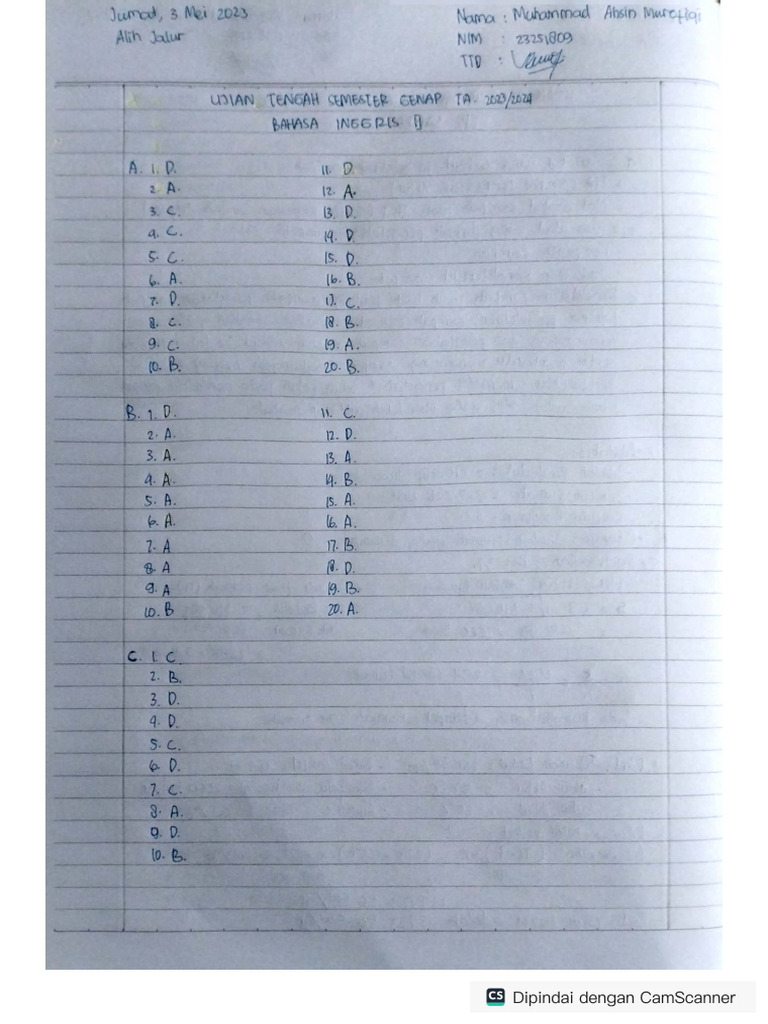 Jumat, 3 Mei 2023
Alih Jalur
Nama : Muhammad Ahsin
NIM : 23251809
TTD :
UJIAN TENGAH SEMESTER GENAP TA. 2023/2024
BAHASA INGGRIS II
A. 1. D.
2. A.
3. C.
4. C.
5. C.
6. A.
7. D.
8. C.
9. C.
10. B.
11. D.
12. A.
13. D.
14. D
15. D.
16. B.
17. C.
18. B.
19. A.
20. B.
B. 1. D.
2. A.
3. A.
4. A.
5. A.
6. A.
7. A
8. A
9. A
10. B
11. C.
12. D.
13. A.
14. B.
15. A.
16. A.
17. B.
18. D.
19. B.
20. A.
C. 1. C.
2. B.
3. D.
4. D.
5. C.
6. D.
7. C.
8. A.
9. D.
10. B.
CS Dipindai dengan CamScanner